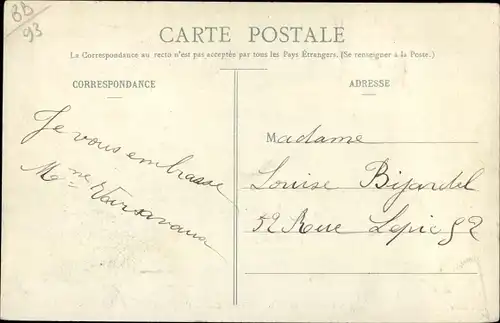 BB
93
CARTE POSTALE
La Correspondance au recto n'est pas acceptée par tous les Pays Étrangers. (Se renseigner à la Poste.)
CORRESPONDANCE
Je vous embrasse
Mme
ADRESSE
Madame
Louise Bijardel
52 Rue Lepic 52